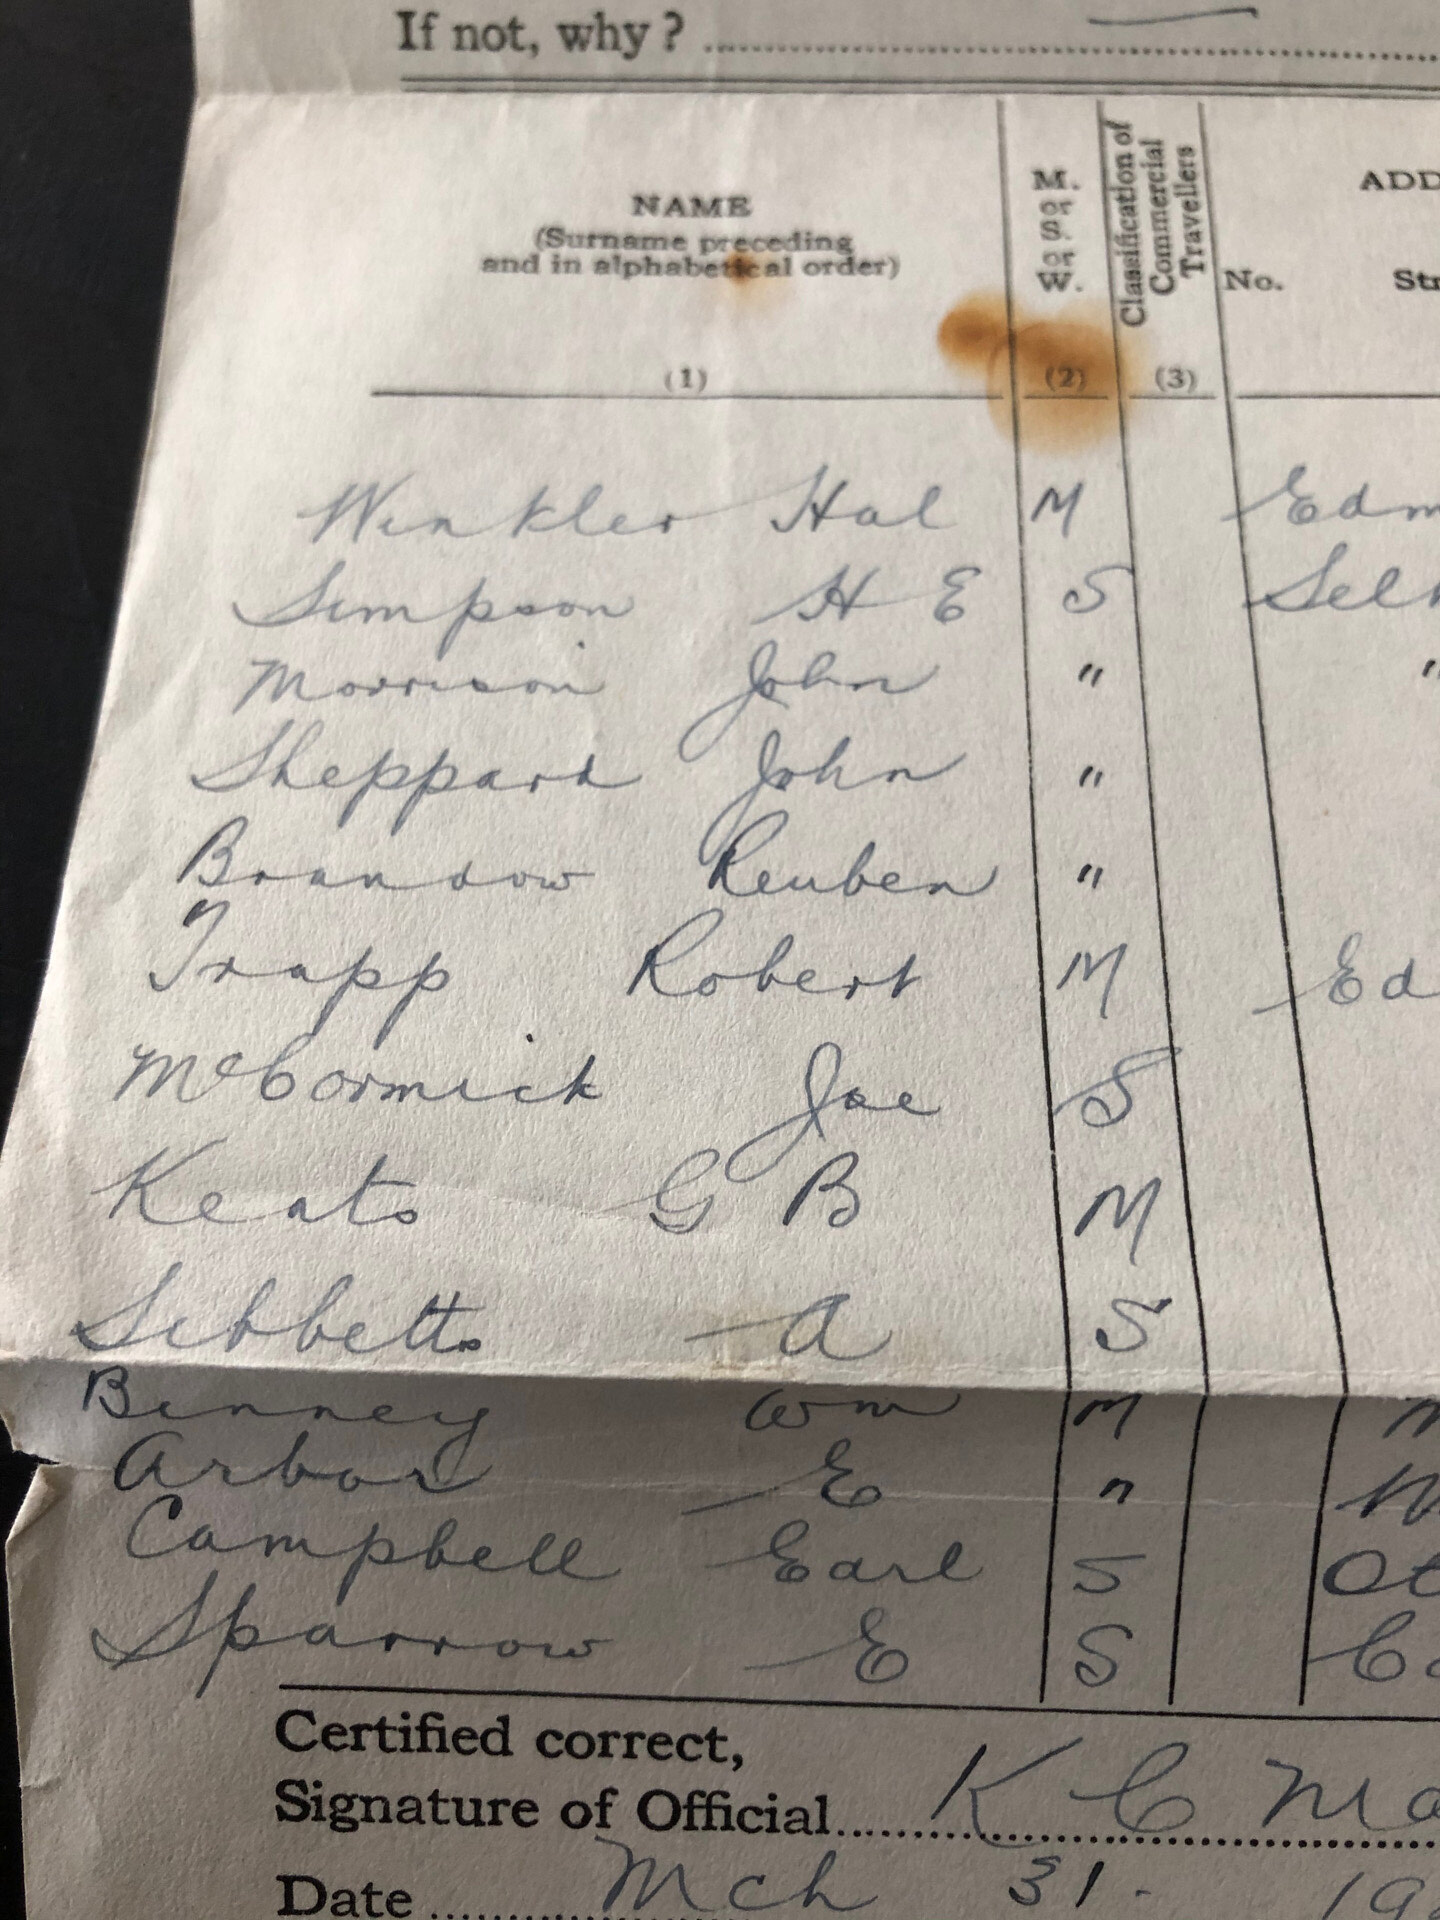 If not, why?
NAME
(Surname preceding
and in alphabetical order)
(1)
M.
or
S.
or
W.
(2)
Classification of
Commercial
Travellers
(3)
ADD
No. Str
Winkler Hal M Edm
Simpson H E S Selk
Morrison John " "
Sheppard John "
Brandow Reuben "
Trapp Robert M Ed
McCormick Joe S
Keats G B M
Sibbetts A S
Binney Wm M
Arbor E "
Campbell Earl S Ot
Sparrow E S Ca
Certified correct,
Signature of Official K C Ma
Date Mch 31. 19